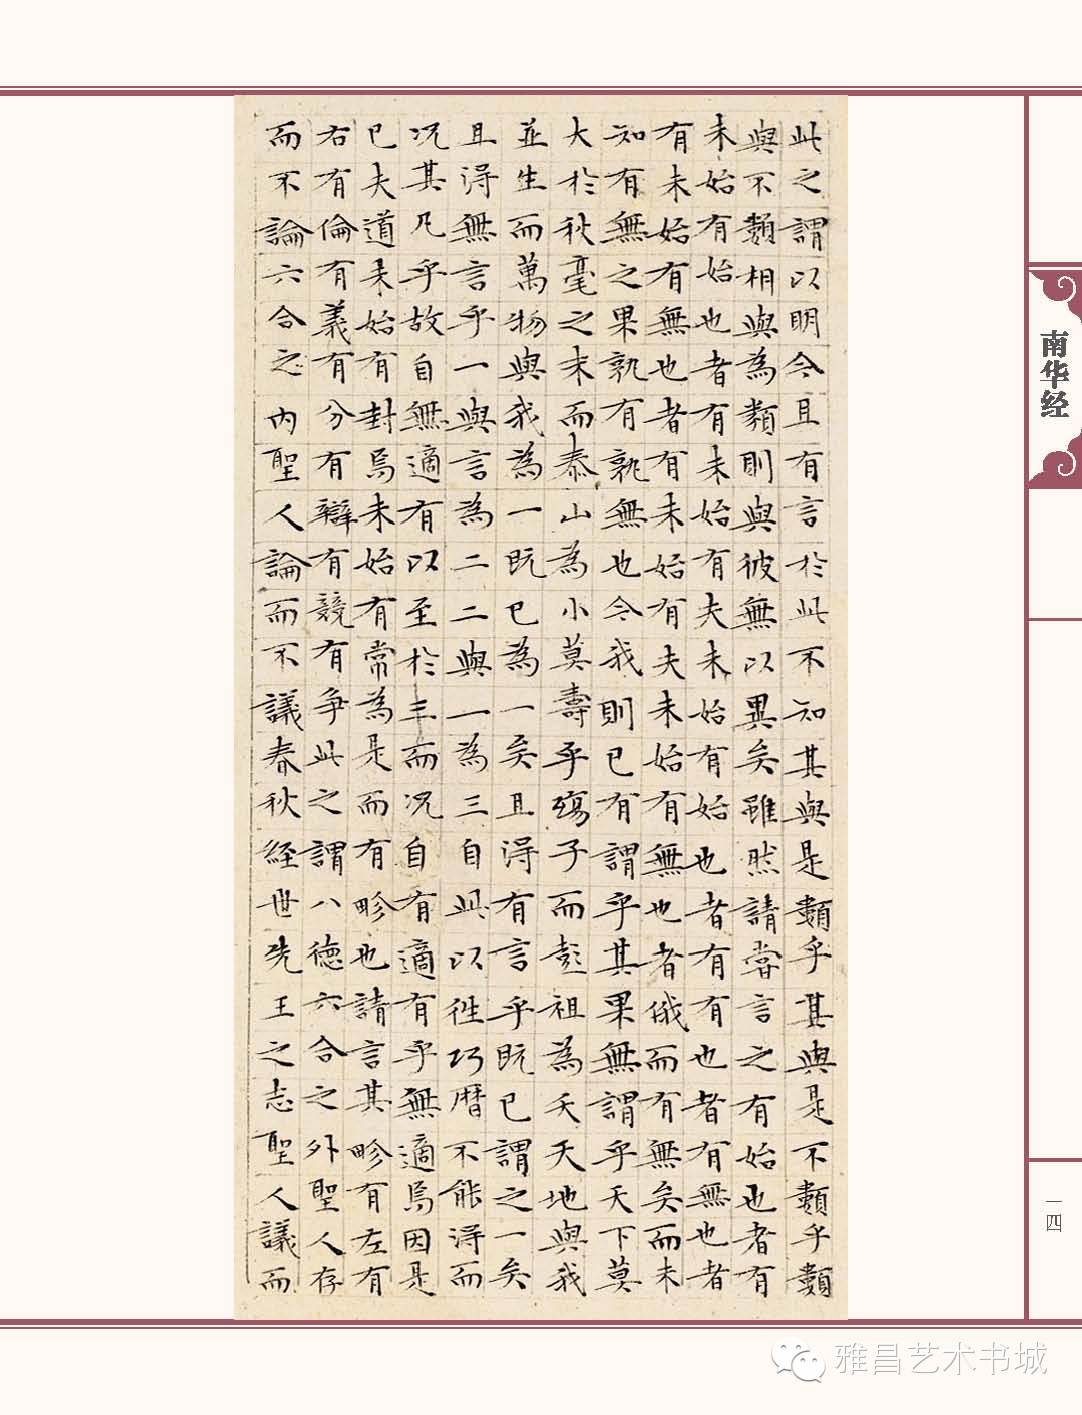 此之謂以明今且有言於此不知其與是類乎其與是不類乎類
與不類相與為類則與彼無以異矣雖然請嘗言之有始也者有
未始有始也者有未始有夫未始有始也者有有也者有無也者
有未始有無也者有未始有夫未始有無也者俄而有無矣而未
知有無之果孰有孰無也今我則已有謂乎其果無謂乎天下莫
大於秋毫之末而泰山為小莫壽乎殤子而彭祖為夭天地與我
並生而萬物與我為一既已為一矣且得有言乎既已謂之一矣
且得無言乎一與言為二二與一為三自此以往巧曆不能得而
況其凡乎故自無適有以至於三而況自有適有乎無適焉因是
已夫道未始有封焉未始有常為是而有畛也請言其畛有左有
右有倫有義有分有辯有競有爭此之謂八德六合之外聖人存
而不論六合之內聖人論而不議春秋經世先王之志聖人議而
南华经
一四
雅昌艺术书城